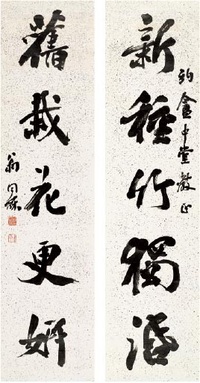 盦中堂教正
新種竹獨
舊栽花更妍
翁同龢